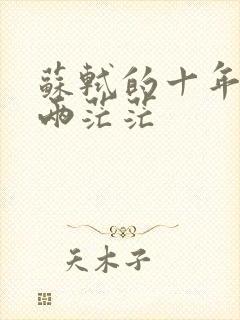 蘇軾的十年
兩茫茫
天木子